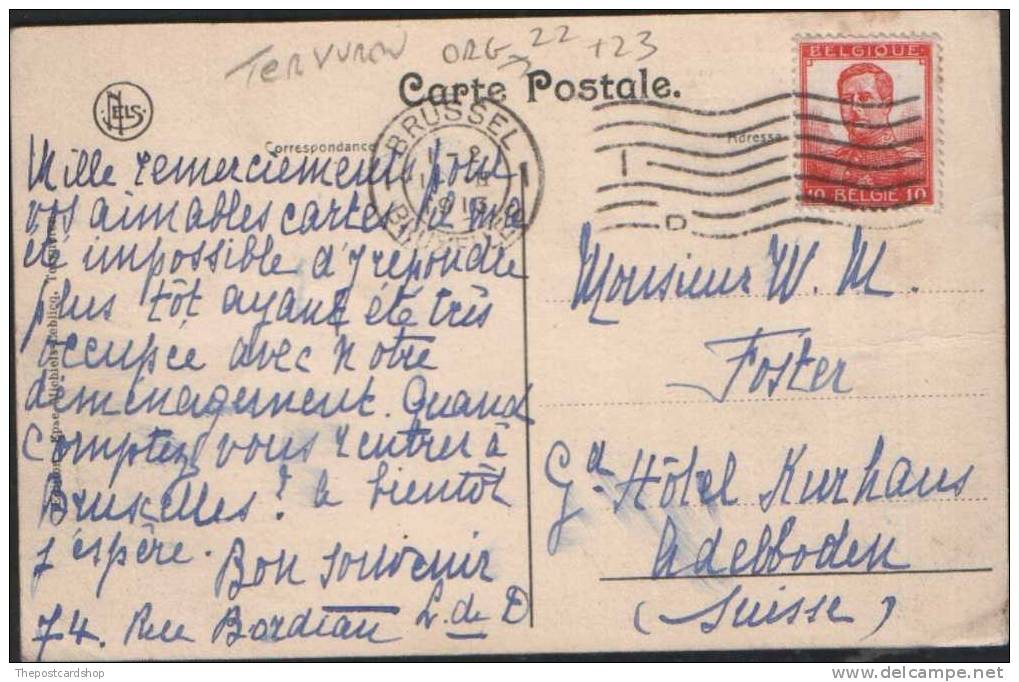 TERVUREN ORG 22 + 23
Carte Postale.
NELS
Correspondance
Adresse
BRUSSEL
BRUXELLES
BELGIQUE
10 BELGIE 10
Mille remerciements pour
vos aimables cartes. Il m'a
été impossible d'y répondre
plus tôt ayant été très
occupée avec notre
déménagement. Quand
comptez vous rentrer à
Bruxelles? à bientôt
j'espère. Bon souvenir
74. Rue Bordiau L. de D
Monsieur W. M.
Foster
Gd Hôtel Kurhaus
Adelboden
(Suisse)
Thepostcardshop
www.delcampe.net